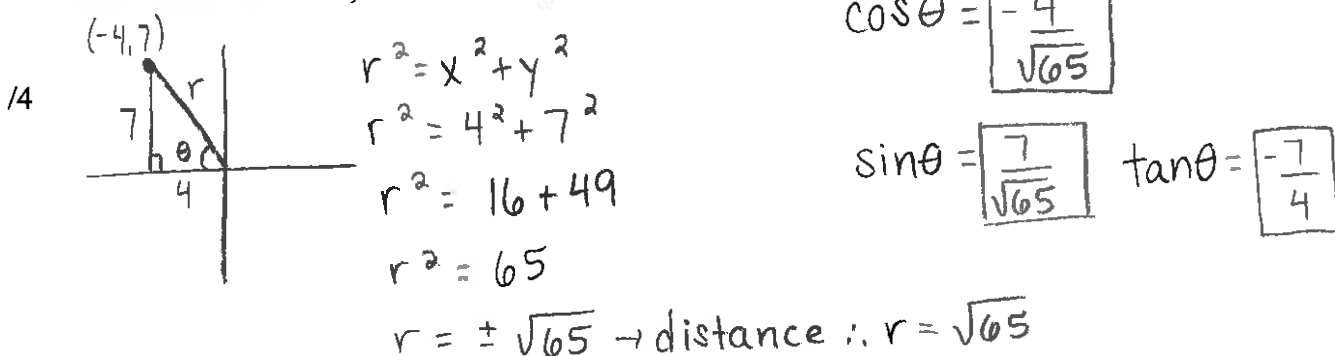 (-4,7)
r
7
θ
4
/4
r² = x² + y²
r² = 4² + 7²
r² = 16 + 49
r² = 65
r = ± √65 → distance ∴ r = √65
cosθ = -4/√65
sinθ = 7/√65
tanθ = -7/4